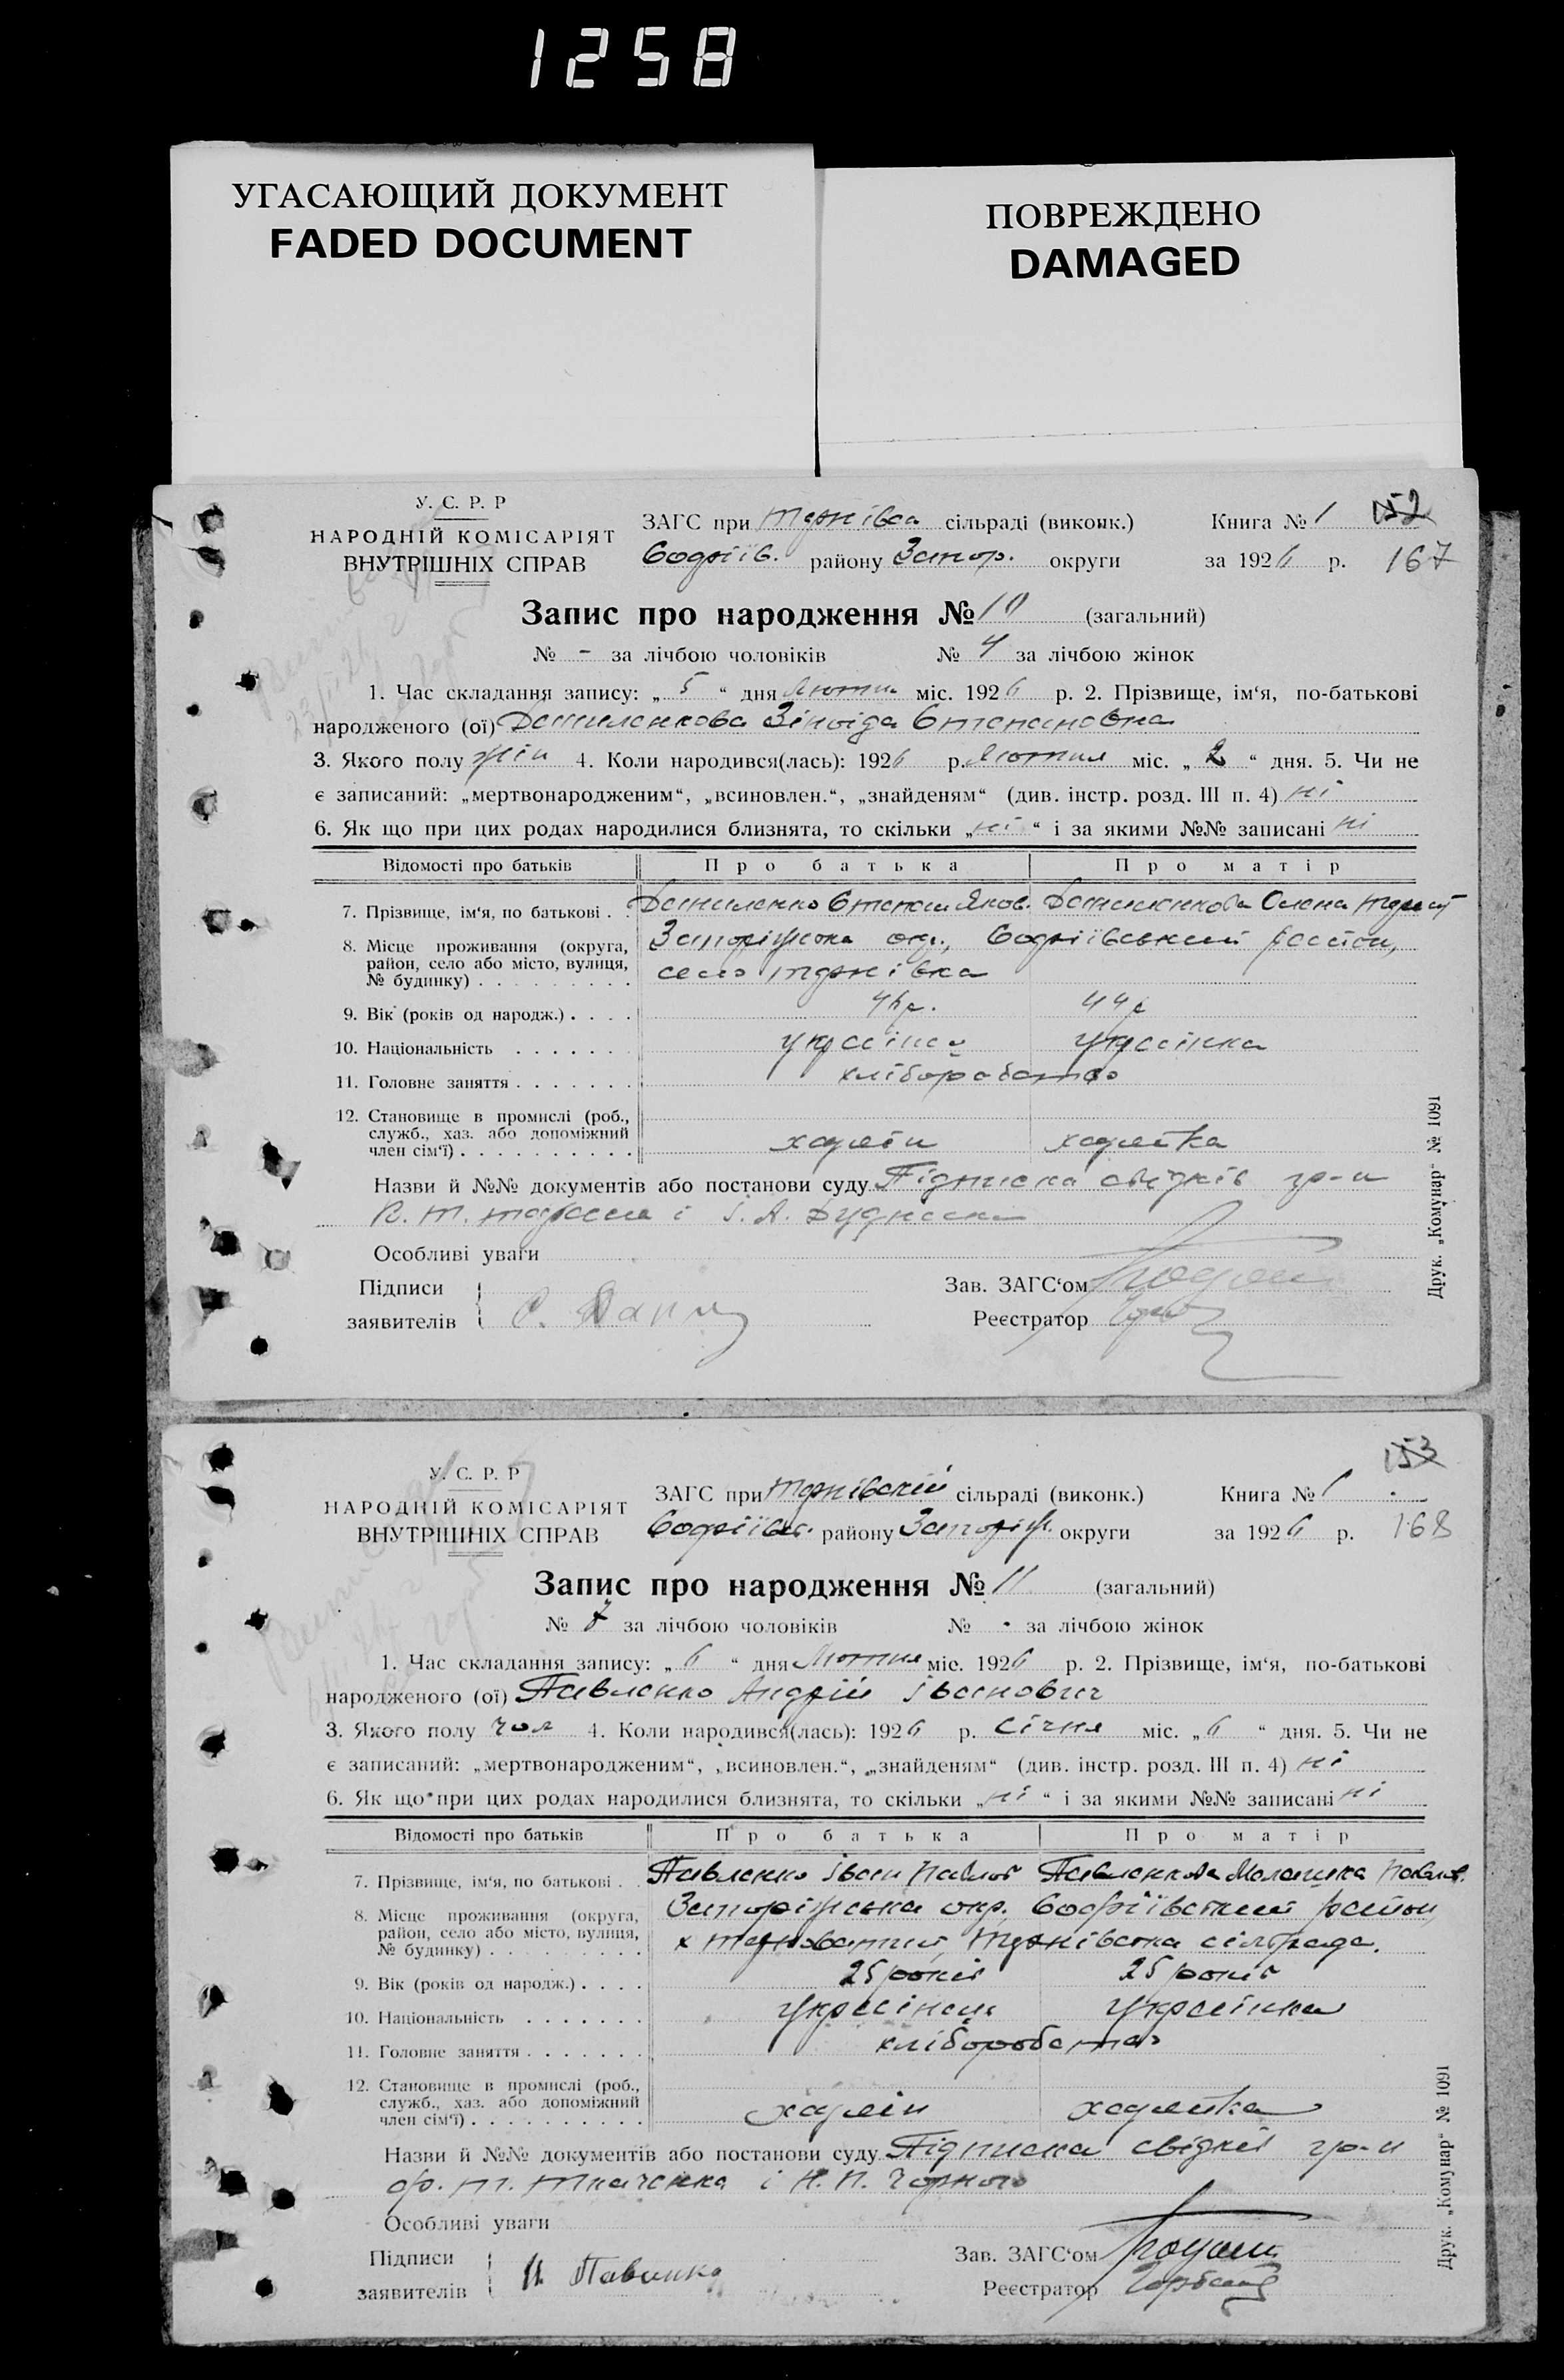 1258
УГАСАЮЩИЙ ДОКУМЕНТ
FADED DOCUMENT
ПОВРЕЖДЕНО
DAMAGED
У. С. Р. Р
НАРОДНІЙ КОМІСАРІЯТ
ВНУТРІШНІХ СПРАВ
ЗАГС при сільраді (виконк.) Книга № 1 152
району Запор. округи за 1926 р. 167
Запис про народження № 10 (загальний)
№ - за лічбою чоловіків № 4 за лічбою жінок
1. Час складання запису: „ 5 “ дня Лютня міс. 1926 р. 2. Прізвище, ім‘я, по-батькові
народженого (ої) Даниленкова Зіноіда Степановна
3. Якого полу жін 4. Коли народився(лась): 1926 р. Лютня міс. „ 2 “ дня. 5. Чи не
є записаний: „мертвонародженим“, „всиновлен.“, „знайденям“ (див. інстр. розд. III п. 4) ні
6. Як що при цих родах народилися близнята, то скільки „ ні “ і за якими №№ записані ні
Відомості про батьків Про батька Про матір
7. Прізвище, ім‘я, по батькові . . Даниленко Степан Яков. Даниленкова Олена
8. Місце проживання (округа, район, село або місто, вулиця, № будинку) . . . . . . . . . Запоріжська окр., Софіївський район,
село
9. Вік (років од народж.) . . . . 44 р
10. Національність . . . . . . . українец українка
11. Головне заняття . . . . . . . хліборобство
12. Становище в промислі (роб., служб., хаз. або допоміжний член сім‘ї) . . . . . . . . . .
хазяін хазяйка
Назви й №№ документів або постанови суду Підписка свідків гр-н
і
Особливі уваги
Підписи
заявителів
Зав. ЗАГС‘ом
Реєстратор
Друк. „Комунар“ № 1091
У. С. Р. Р
НАРОДНІЙ КОМІСАРІЯТ
ВНУТРІШНІХ СПРАВ
ЗАГС при сільраді (виконк.) Книга № 1 153
району Запоріж. округи за 1926 р. 168
Запис про народження № 11 (загальний)
№ 7 за лічбою чоловіків № - за лічбою жінок
1. Час складання запису: „ 6 “ дня Лютня міс. 1926 р. 2. Прізвище, ім‘я, по-батькові
народженого (ої) Павленко Андрій Іванович
3. Якого полу чол 4. Коли народився(лась): 1926 р. Січня міс. „ 6 “ дня. 5. Чи не
є записаний: „мертвонародженим“, „всиновлен.“, „знайденям“ (див. інстр. розд. III п. 4) ні
6. Як що при цих родах народилися близнята, то скільки „ ні “ і за якими №№ записані ні
Відомості про батьків Про батька Про матір
7. Прізвище, ім‘я, по батькові . . Павленко Іван Павлов Павленкова Мелашка Павлов.
8. Місце проживання (округа, район, село або місто, вулиця, № будинку) . . . . . . . . . Запоріжська окр. Софіївський район,
сільрада.
9. Вік (років од народж.) . . . . 25 років 25 років
10. Національність . . . . . . . українець українка
11. Головне заняття . . . . . . . хліборобство
12. Становище в промислі (роб., служб., хаз. або допоміжний член сім‘ї) . . . . . . . . . .
хазяін хазяйка
Назви й №№ документів або постанови суду Підписка свідків гр-н
Ф. Т. Ткаченка і Н. П. Чорного
Особливі уваги
Підписи
заявителів
И. Павленко
Зав. ЗАГС‘ом
Реєстратор
Друк. „Комунар“ № 1091